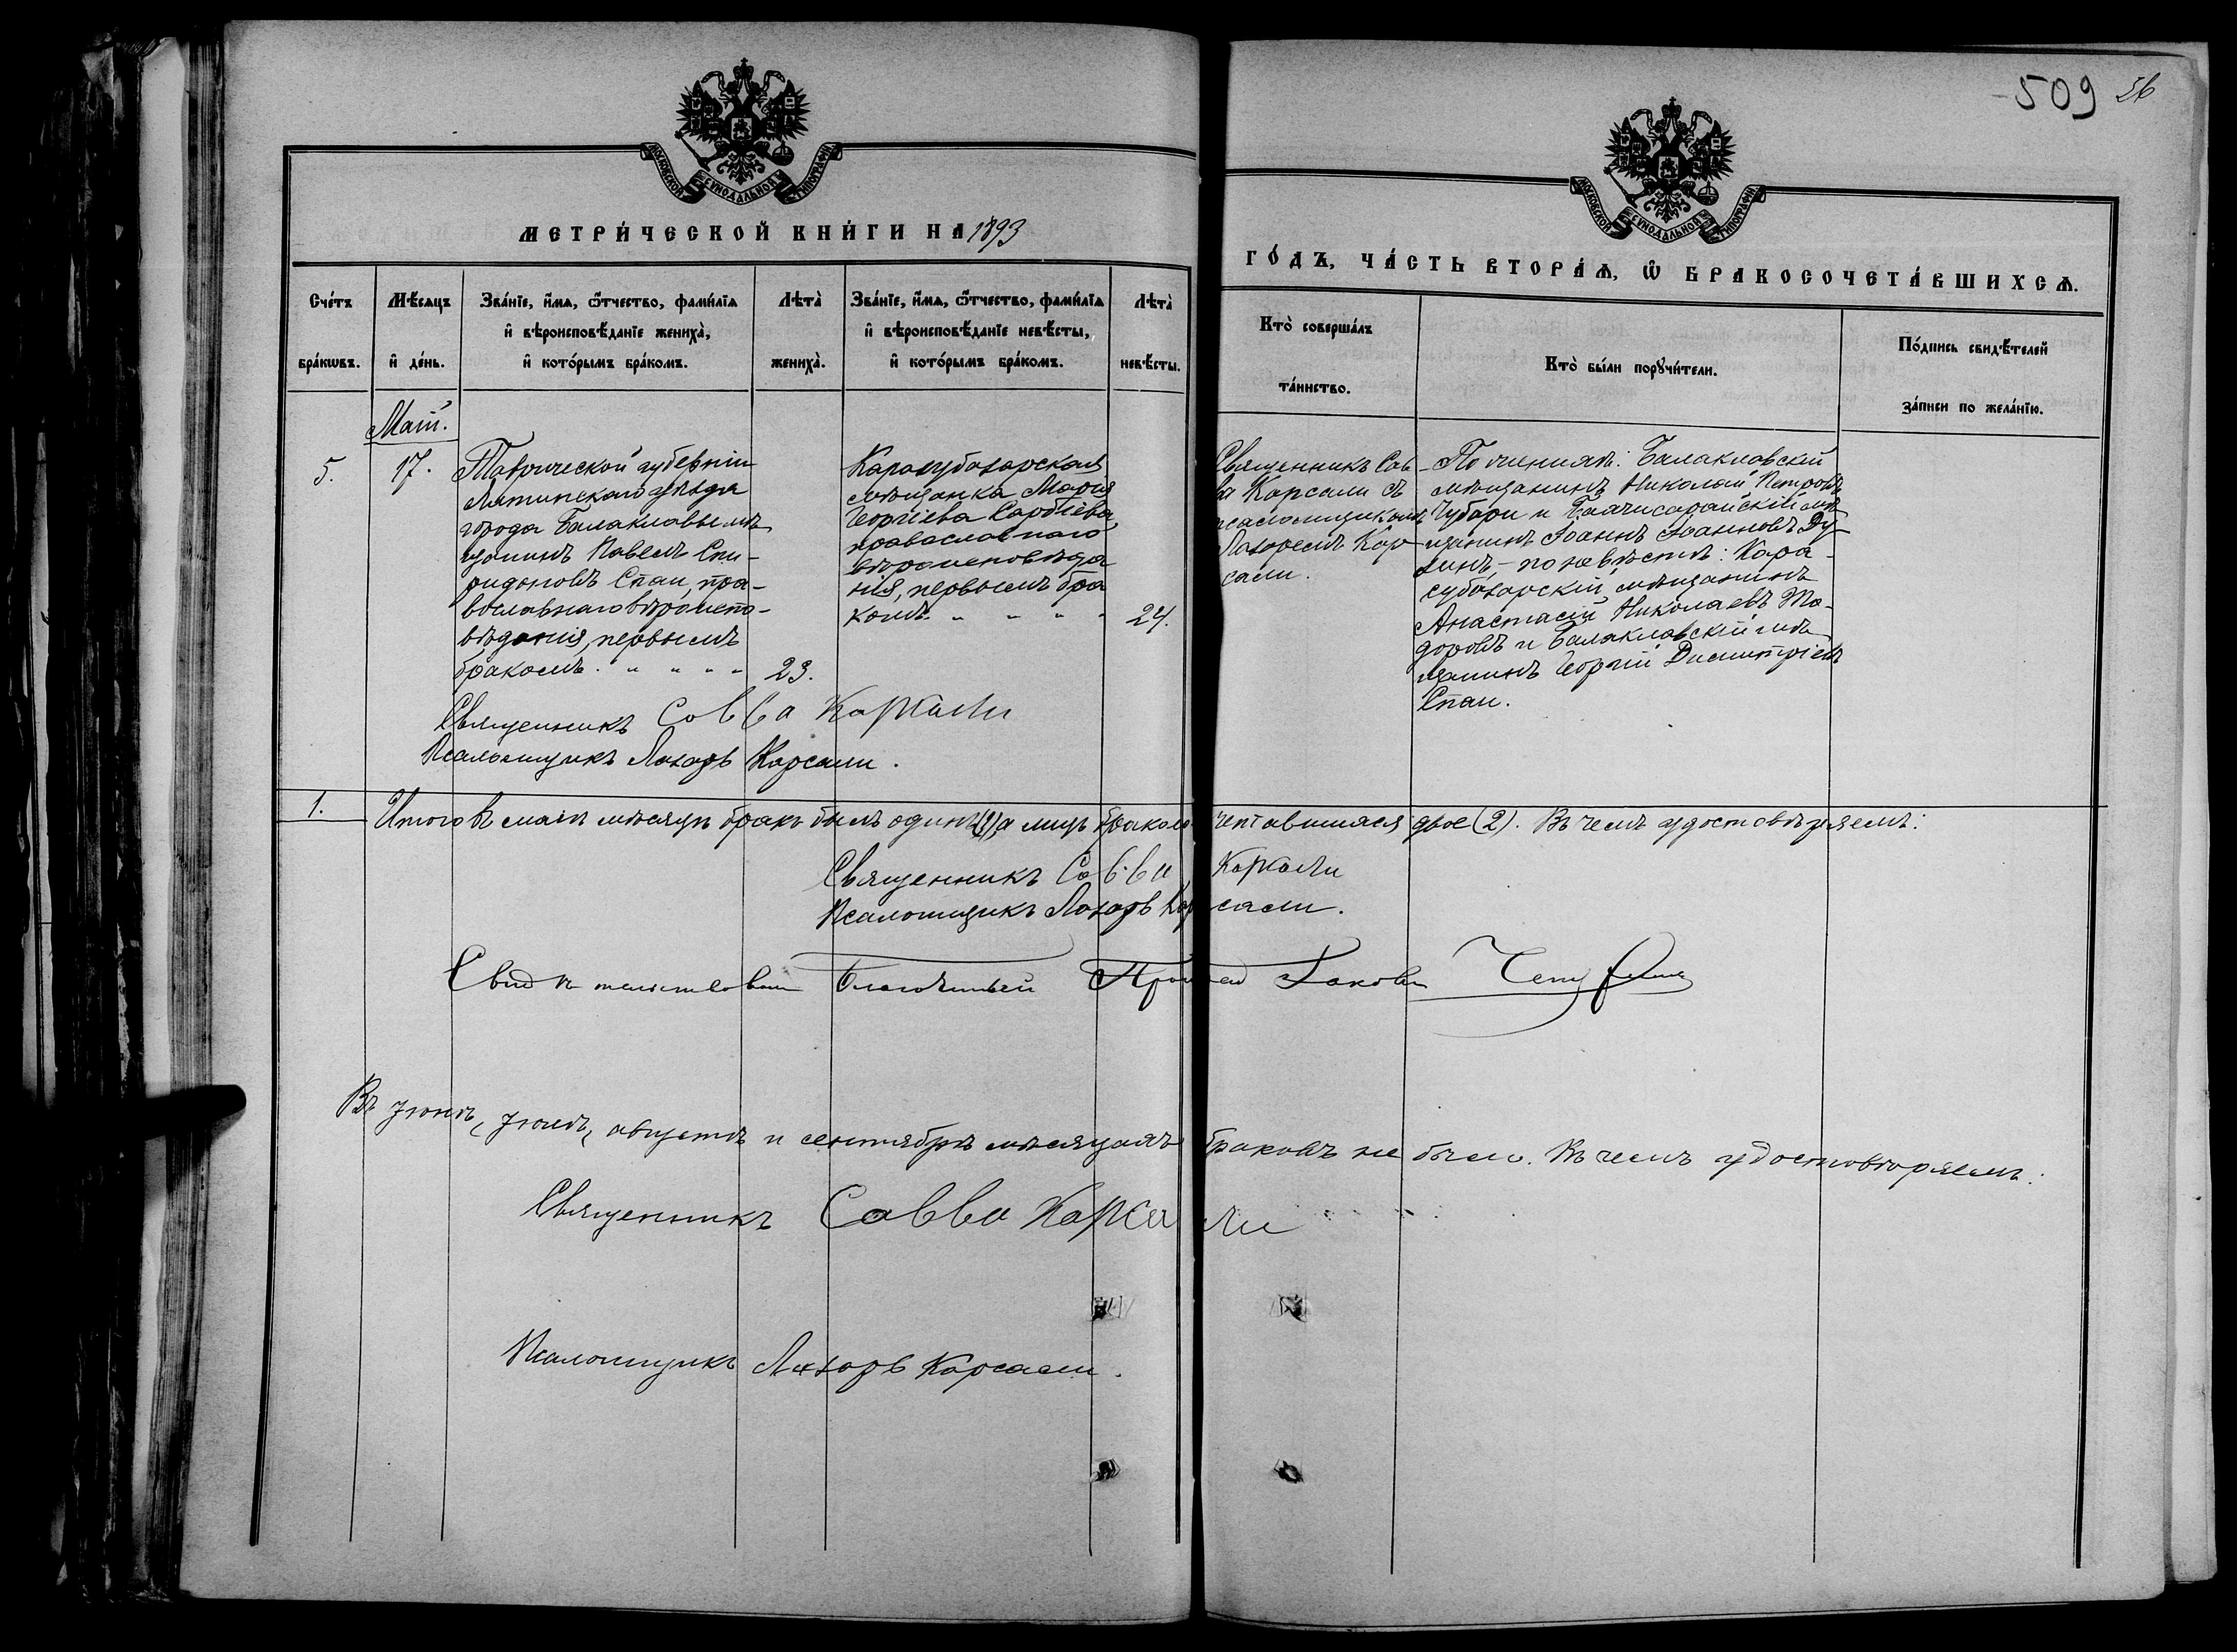 509 56
МОСКОВСКОЙ СѴНОДАЛЬНОЙ ТИПОГРАФІИ
МОСКОВСКОЙ СѴНОДАЛЬНОЙ ТИПОГРАФІИ
МЕТРИ́ЧЕСКОЙ КНИ́ГИ НА 1893
ГО́ДЪ, ЧА́СТЬ ВТОРА́Ѧ, Ѡ҆ БРАКОСОЧЕТА́ВШИХСѦ.
Сче́тъ
бра́кѡвъ.
Мѣ́сѧцъ
и҆ де́нь.
Зва́нїе, и҆́мѧ, ѻ҆́тчество, фами́лїѧ
и҆ вѣроисповѣ́данїе жениха̀,
и҆ кото́рымъ бра́комъ.
Лѣта̀
жениха̀.
Зва́нїе, и҆́мѧ, ѻ҆́тчество, фами́лїѧ
и҆ вѣроисповѣ́данїе невѣ́сты,
и҆ кото́рымъ бра́комъ.
Лѣта̀
невѣ́сты.
Кто̀ соверша́лъ
та́инство.
Кто̀ бы́ли порꙋчи́тели.
По́дпись свидѣ́телей
за́писи по жела́нїю.
Май.
5.
17.
Таврической губерніи
Ялтинскаго уѣзда
города Балаклавы мѣ-
щанинъ Павелъ Спи-
ридоновъ Спаи, пра-
вославнаго вѣроиспо-
вѣданія, первымъ
бракомъ. " " " "
23.
Карасубазарская
мѣщанка Марія
Георгіева Сарбіева,
православнаго
вѣроисповѣда
нія, первымъ бра
комъ. " " " "
24.
Священникъ Сав
ва Карсали съ
псаломщикомъ
Лазаремъ Кар
сали.
По женихѣ: Балаклавскій
мѣщанинъ Николай Петровъ
Чубари и Бахчисарайскій мѣ-
щанинъ Іоаннъ Іоанновъ Ду
- по невѣстѣ: Кара-
субазарскій мѣщанинъ
Анастасій Николаевъ То-
доровъ и Балаклавскій мѣ-
щанинъ Георгій Димитріевъ
Спаи.
Священникъ Савва Карсали
Псаломщикъ Лазарь Карсали.
1.
Итого въ маѣ мѣсяцѣ бракъ былъ одинъ (1) а лицъ бракосочетавшихся двое (2). Въ чемъ удостовѣряемъ:
Священникъ Савва Карсали
Псаломщикъ Лазарь Карсали.
Свидѣтельствовалъ Благочинный Іаковъ
Въ іюнѣ, іюлѣ, августѣ и сентябрѣ мѣсяцахъ браковъ не было. Въ чемъ удостовѣряемъ:
Священникъ Савва Карсали
Псаломщикъ Лазарь Карсали.